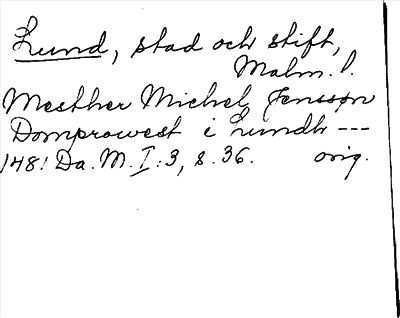 Lund, stad och stift,
Malm. l.
Mesther Michel Jensson
Domprowest i Lundh ---
1481 Da. M. I:3, s. 36. orig.